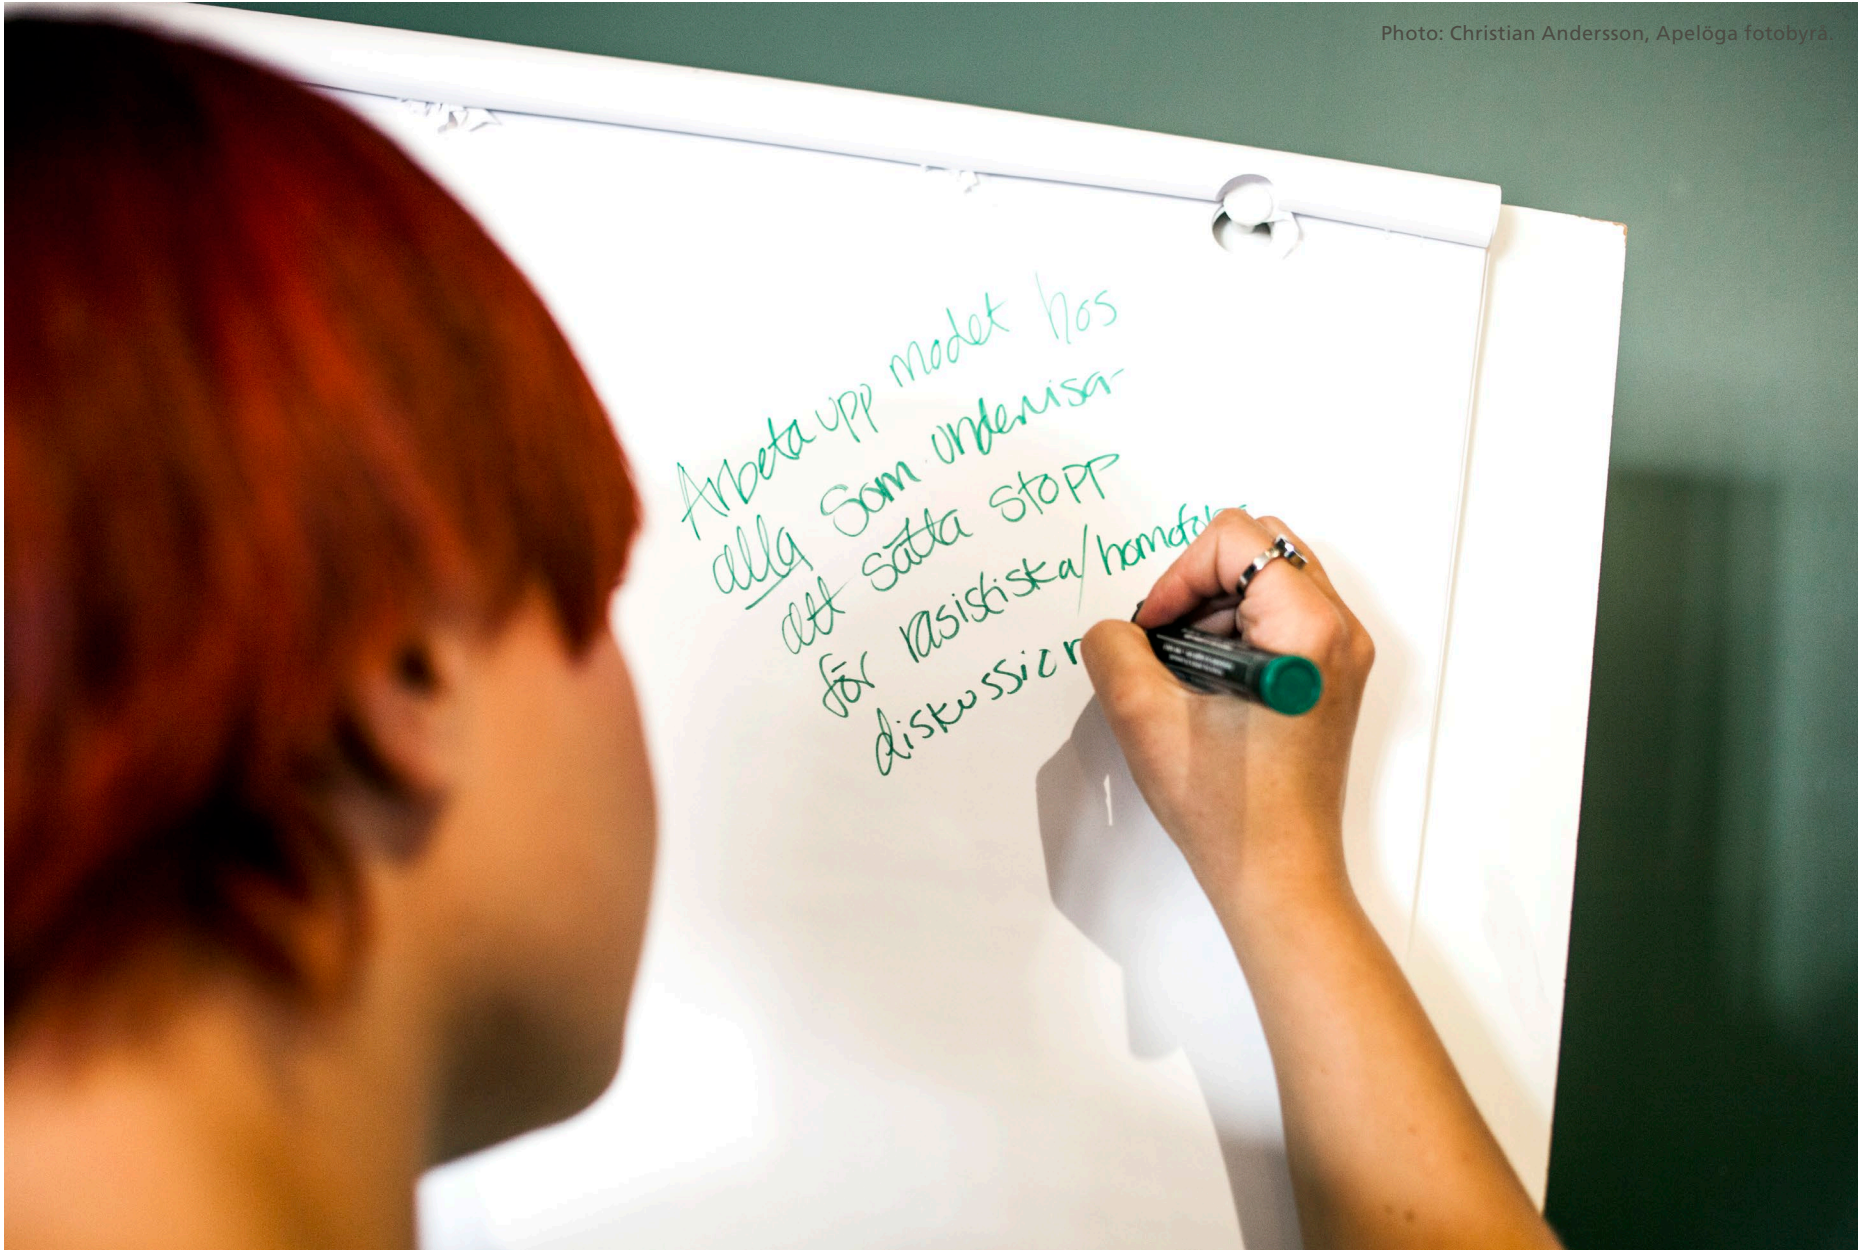 Photo: Christian Andersson, Apelöga fotobyrå.
Arbeta upp modet hos
alla som undervisar
att sätta stopp
för rasistiska/homofo
diskussion